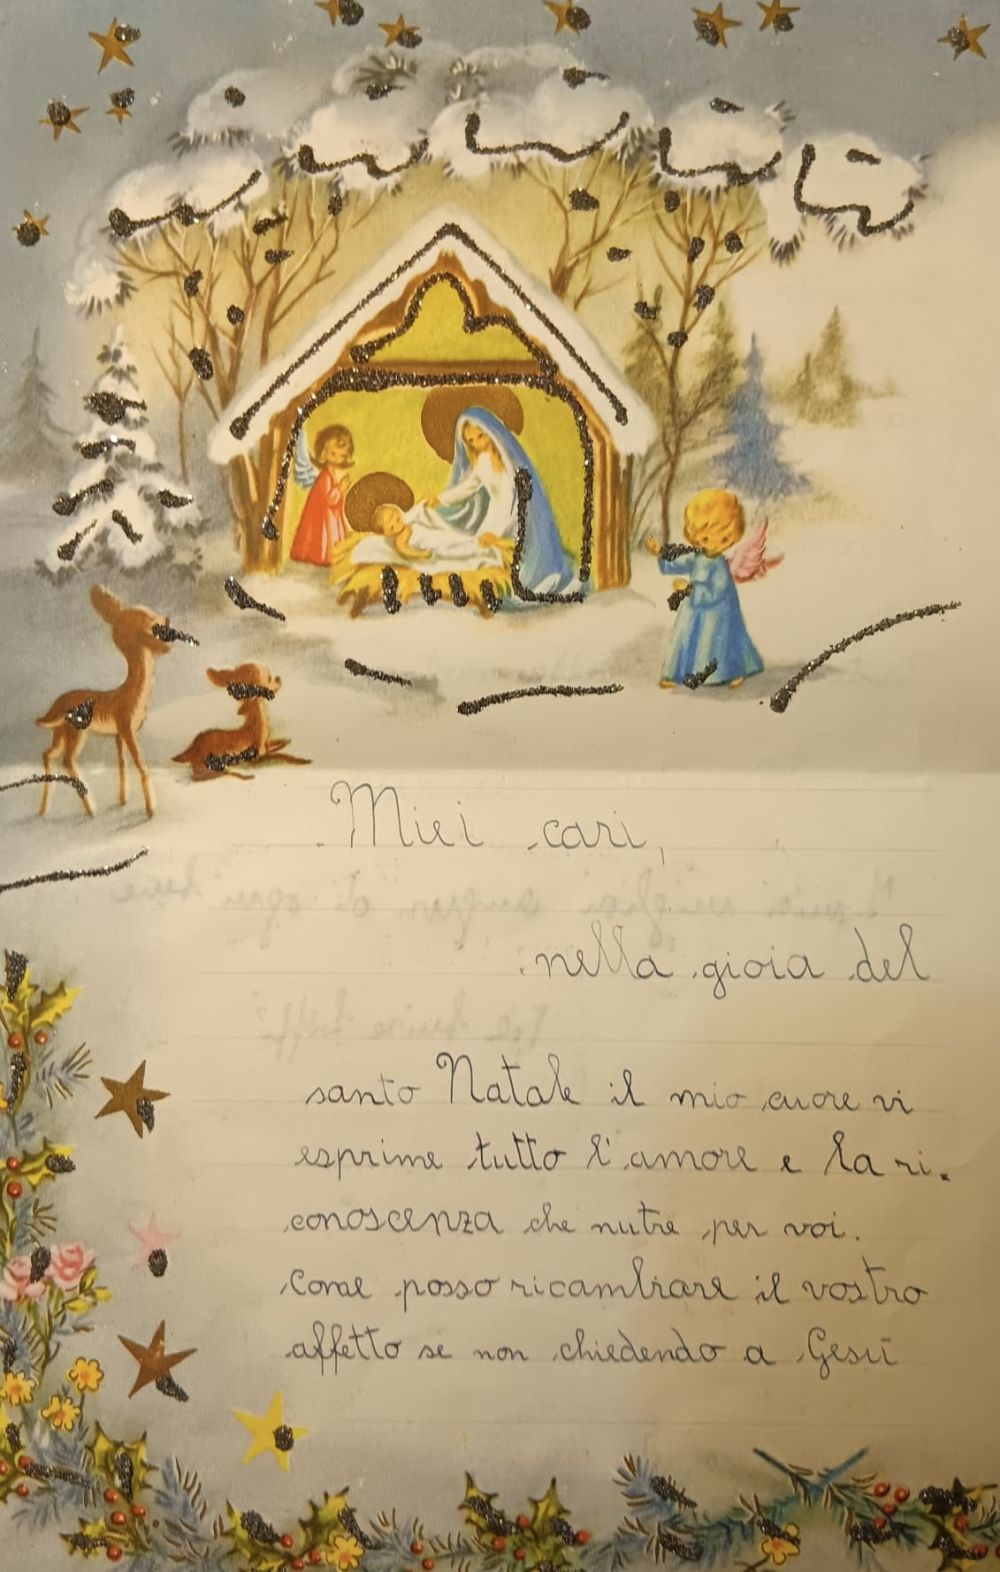 Miei cari,
nella gioia del
santo Natale il mio cuore vi
esprime tutto l'amore e la ri.
conoscenza che nutre per voi.
Come posso ricambiare il vostro
affetto se non chiedendo a Gesù